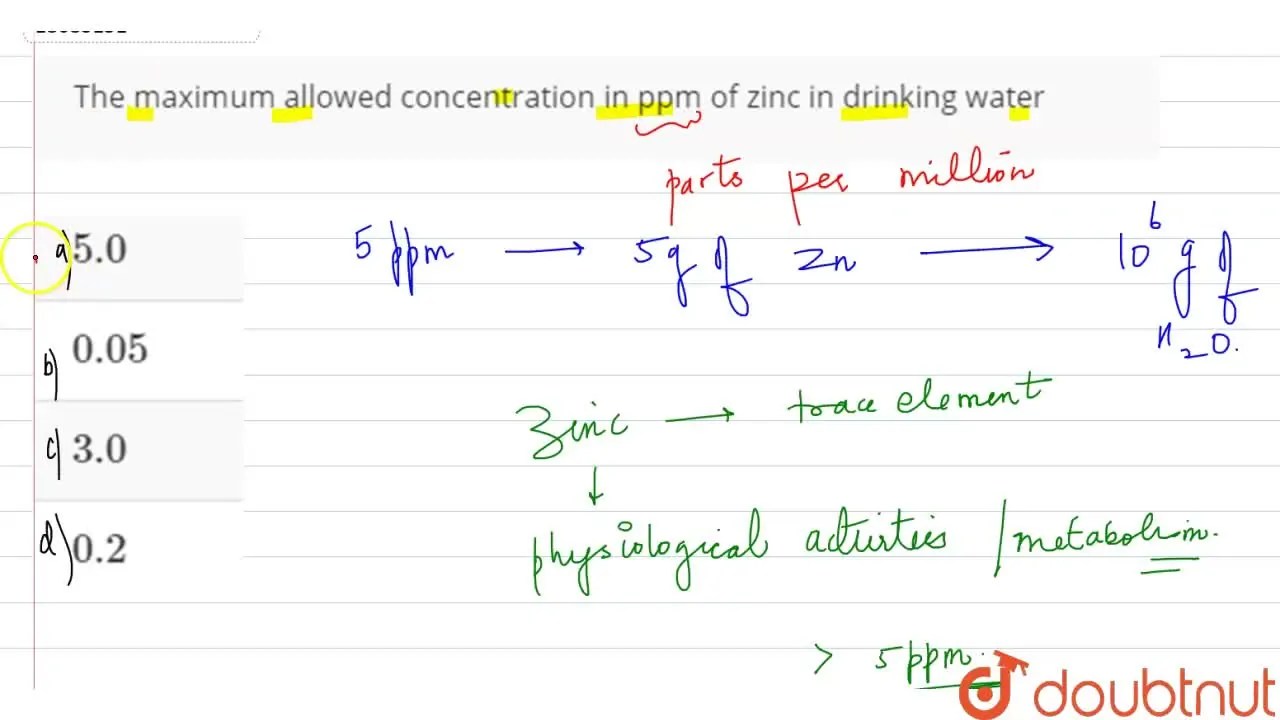 The maximum allowed concentration in ppm of zinc in drinking water
parts per million
a) 5.0
5 ppm → 5g of Zn → 10⁶ g of H₂O.
b) 0.05
Zinc → trace element
c) 3.0
↓
d) 0.2
physiological activities / metabolism.
> 5 ppm.
doubtnut